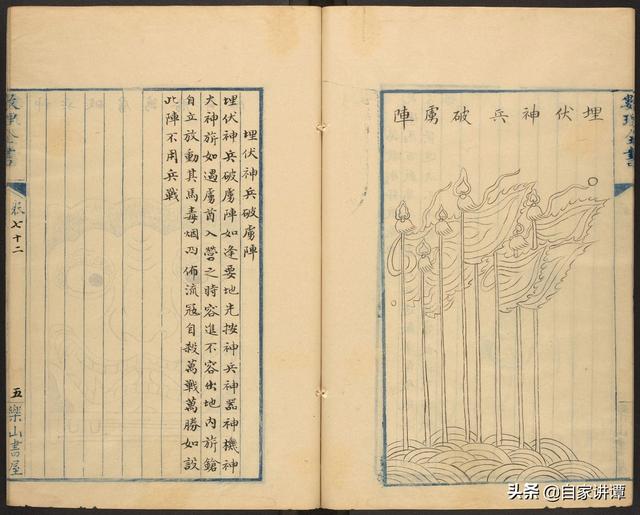 埋伏神兵破虜陣
埋伏神兵破虜陣
埋伏神兵破虜陣如逢要地先按神兵神器神機神
大神旂如遇虜酋入營之時容進不容出地內旂鎗
自立放動其馬毒烟四佈流寇自殺萬戰萬勝如設
此陣不用兵戰
七十二
五
樂山書屋
头条 @自家讲谭